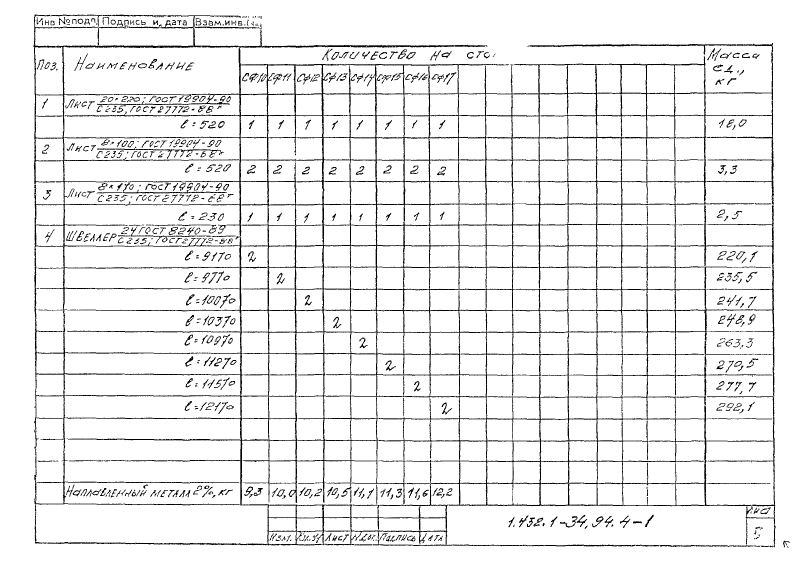 Инв № подл. Подпись и дата Взам. инв.
Поз. Наименование Количество на сто Масса ед., кг
СФ10 СФ11 СФ12 СФ13 СФ14 СФ15 СФ16 СФ17
1 Лист 20×220; ГОСТ 19904-90 / С235; ГОСТ 27772-88*
ℓ=520 1 1 1 1 1 1 1 1 18,0
2 Лист 8×100; ГОСТ 19904-90 / С235; ГОСТ 27772-88*
ℓ=520 2 2 2 2 2 2 2 2 3,3
3 Лист 8×170; ГОСТ 19904-90 / С235; ГОСТ 27772-88*
ℓ=230 1 1 1 1 1 1 1 1 2,5
4 Швеллер 24 ГОСТ 8240-89 / С235; ГОСТ 27772-88*
ℓ=9170 2 220,1
ℓ=9770 2 235,5
ℓ=10070 2 241,7
ℓ=10370 2 248,9
ℓ=10970 2 263,3
ℓ=11270 2 270,5
ℓ=11570 2 277,7
ℓ=12170 2 292,1
Наплавленный металл 2%, кг 9,3 10,0 10,2 10,5 11,1 11,3 11,6 12,2
1.432.1-34.94.4-1
Изм. Кол.уч Лист №док. Подпись Дата
Лист
5